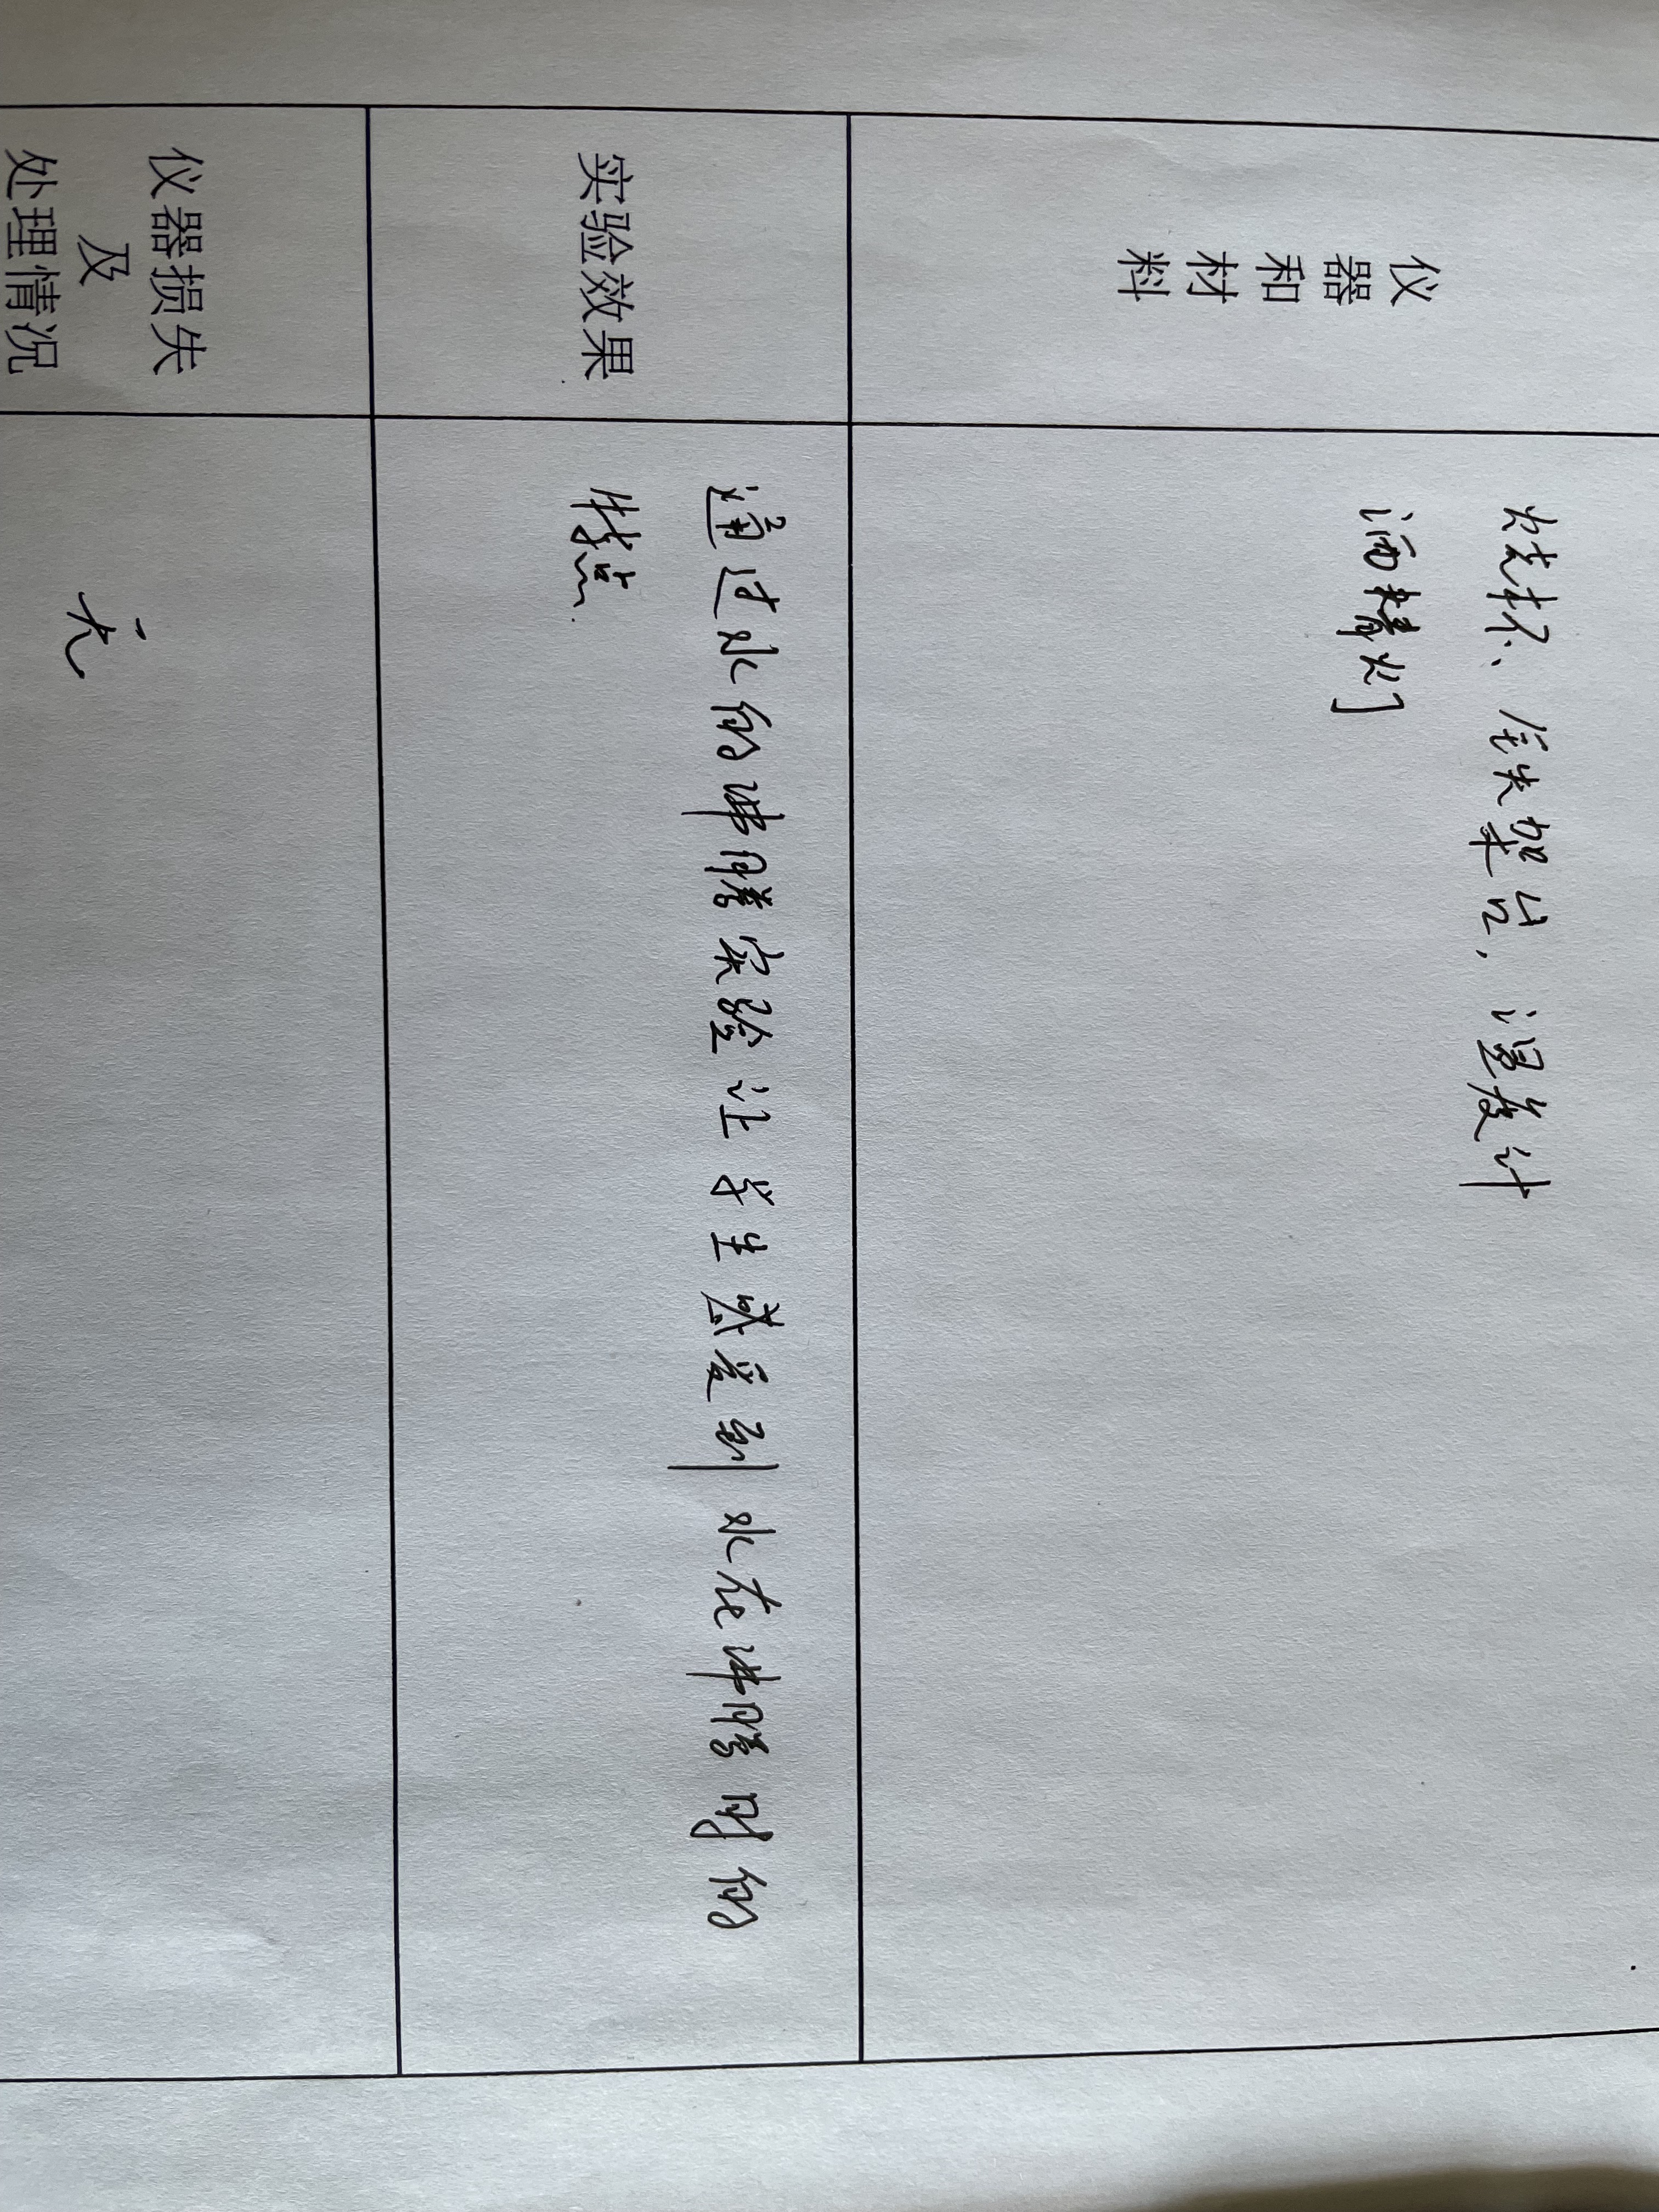 仪
器
和
材
料
烧杯、铁架台，温度计
酒精灯
实验效果
通过水的沸腾实验让学生感受到水在沸腾时的
特点.
仪器损失
及
处理情况
无